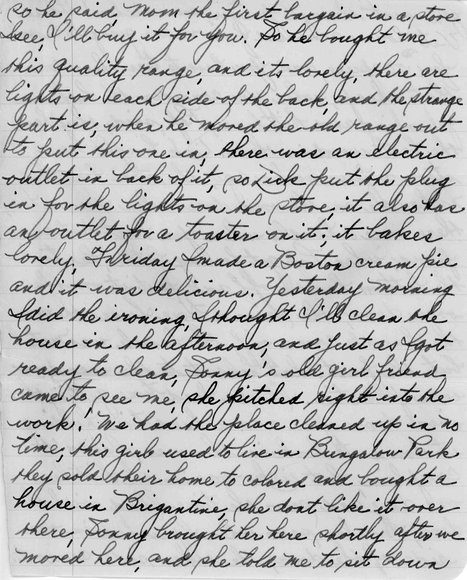 so he said, Mom the first bargain in a stove
I see, I'll buy it for you. So he bought me
this quality range, and its lovely, there are
lights on each side of the back and the strange
part is, when he moved the old range out
to put this one in, there was an electric
outlet in back of it, so Dick put the plug
in for the lights on the stove, it also has
an outlet for a toaster on it, it bakes
lovely, Friday I made a Boston cream pie
and it was delicious. Yesterday morning
I did the ironing, I thought I'll clean the
house in the afternoon, and just as I got
ready to clean, Sonny's old girl friend
came to see me, she pitched right into the
work. We had the place cleaned up in no
time, this girl used to live in Bungalow Park
they sold their home to colored and bought a
house in Brigantine, she dont like it over
there, Sonny brought her here shortly after we
moved here, and she told me to sit down